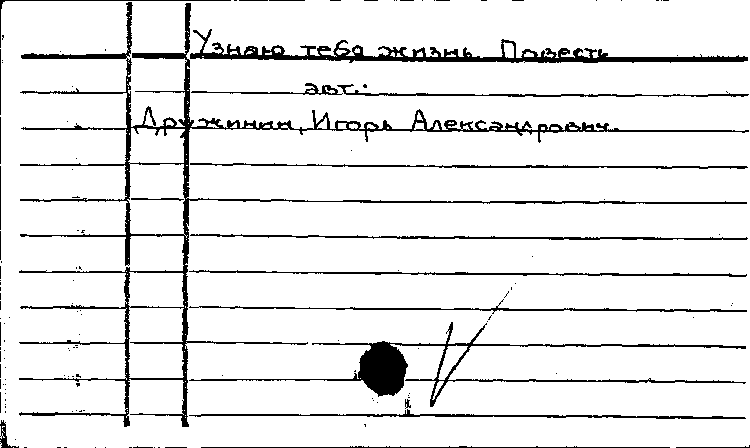 Узнаю тебя жизнь. Повесть
авт.:
Дружинин, Игорь Александрович.